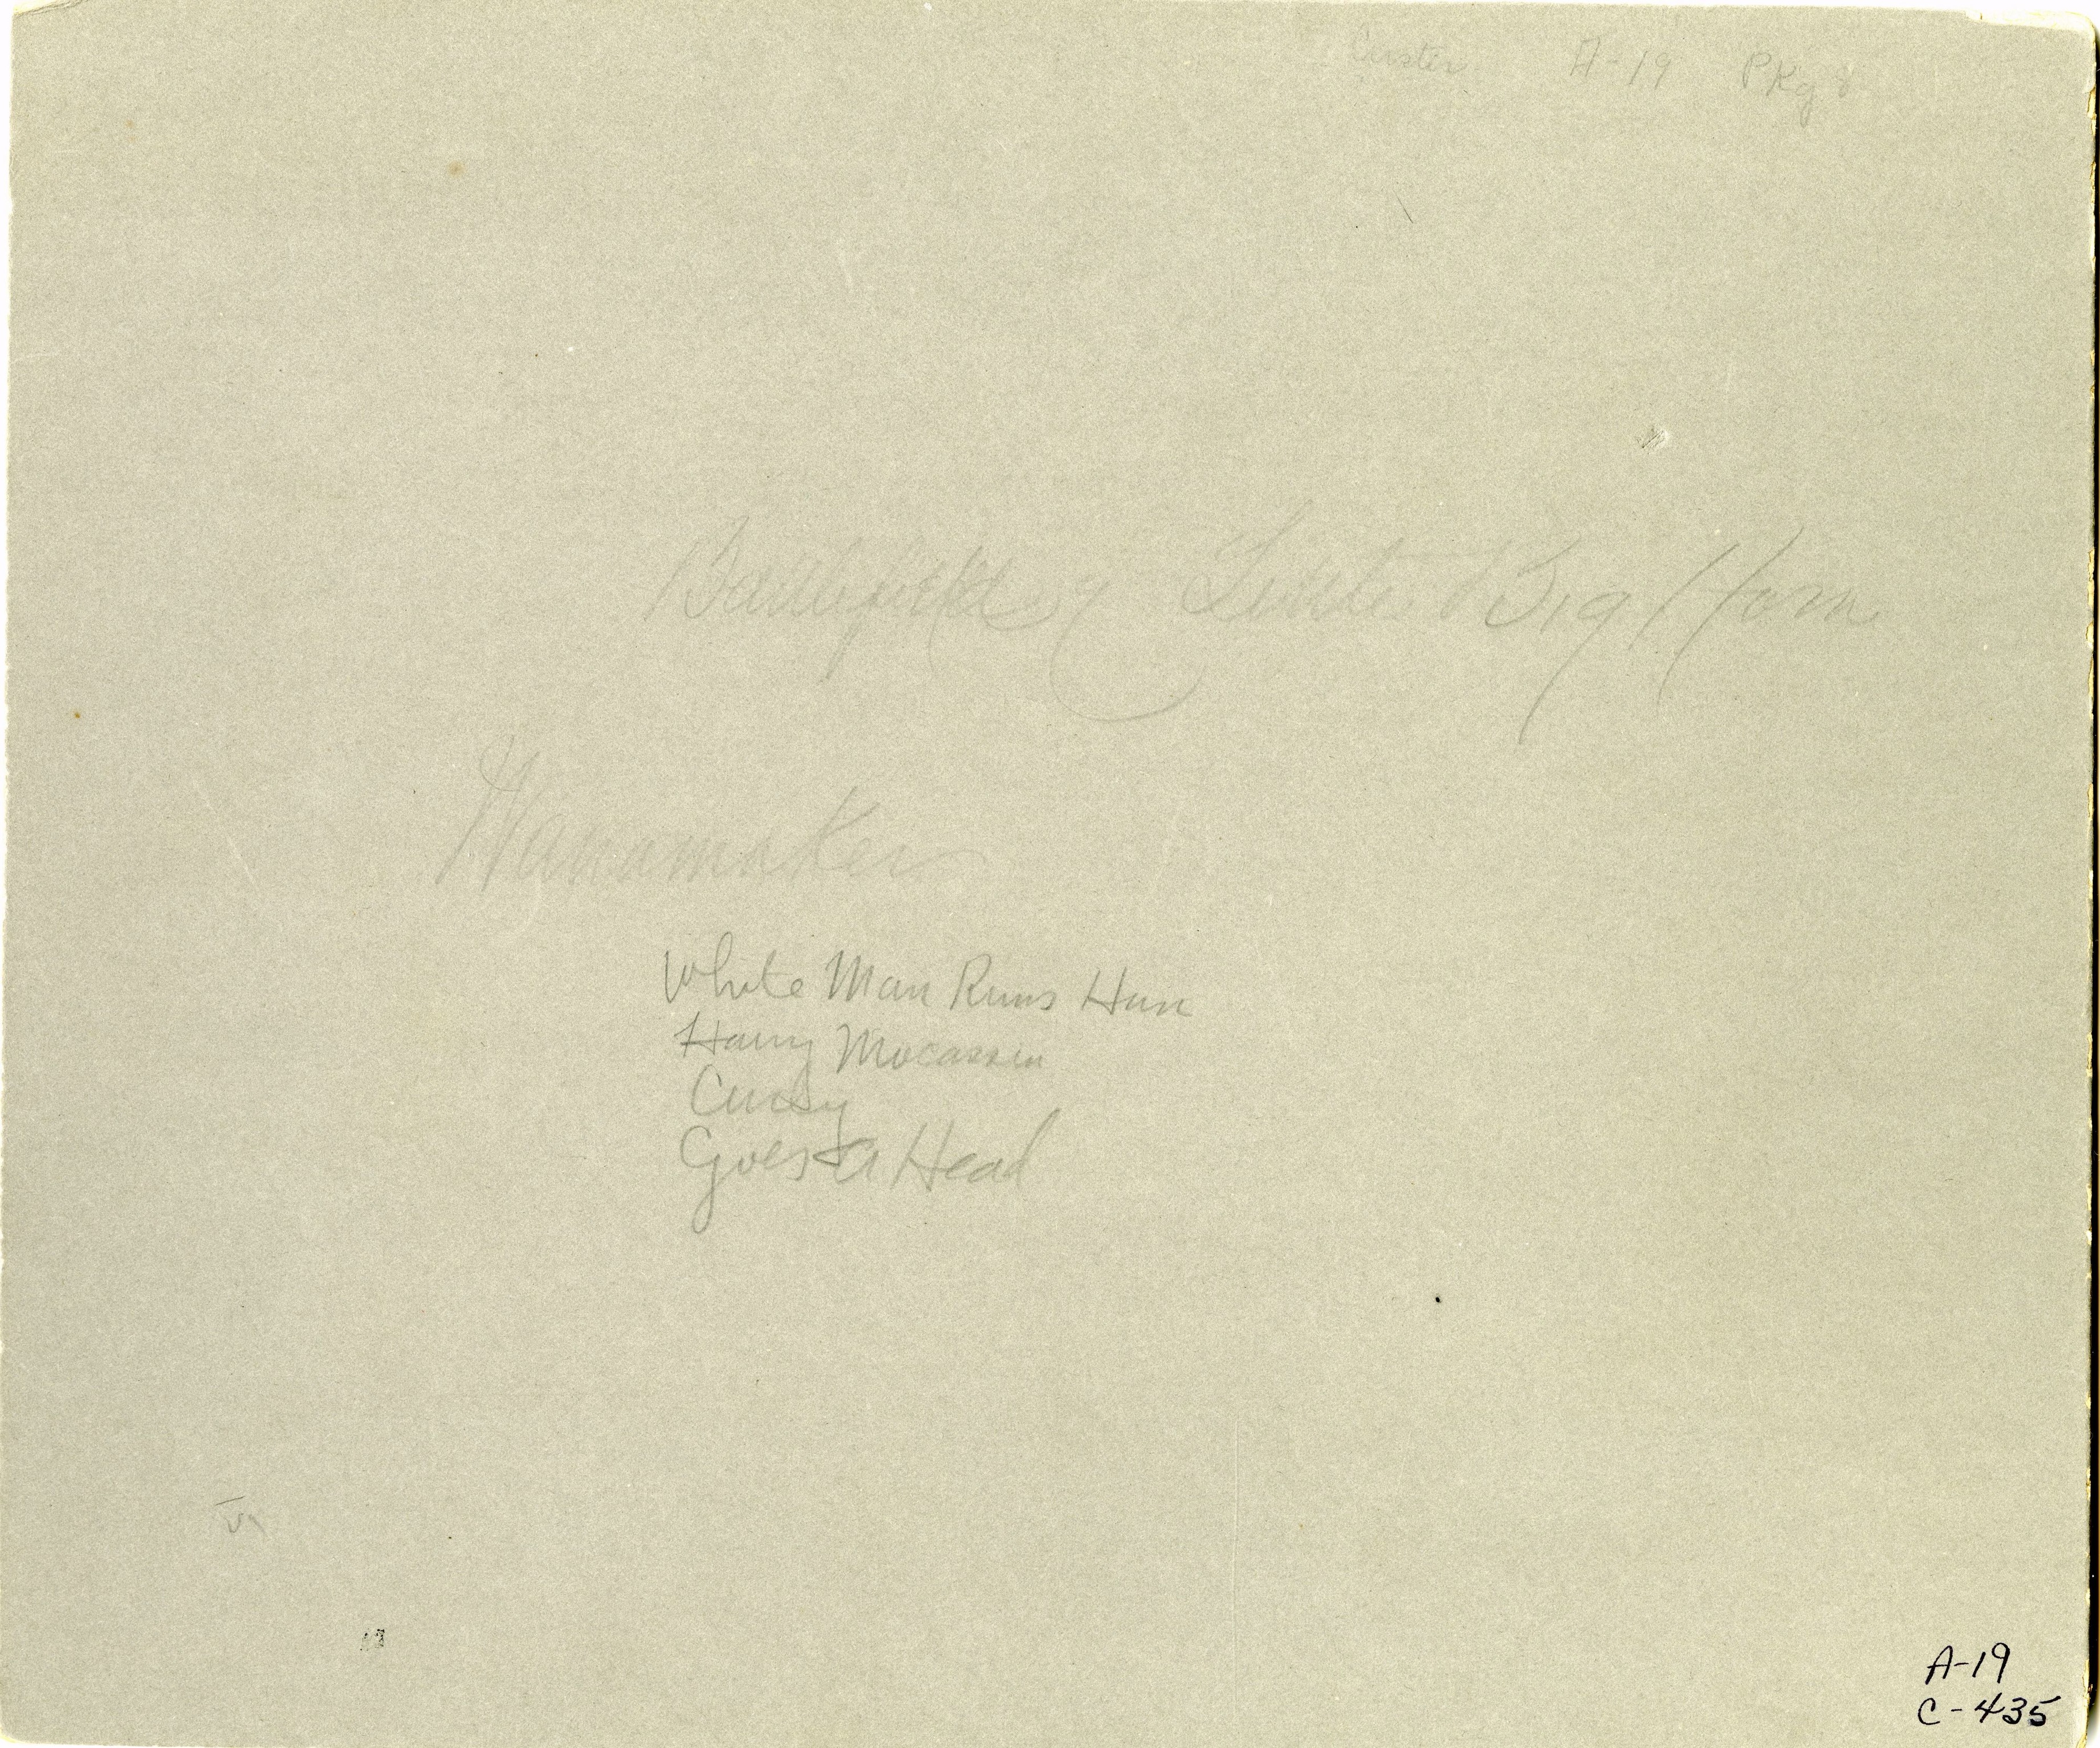 Custer A-19 Pkg
Battlefield of Little Big Horn
Wanamaker
White Man Runs Him
Hairy Mocassin
Curly
Goes a Head
A-19
C-435